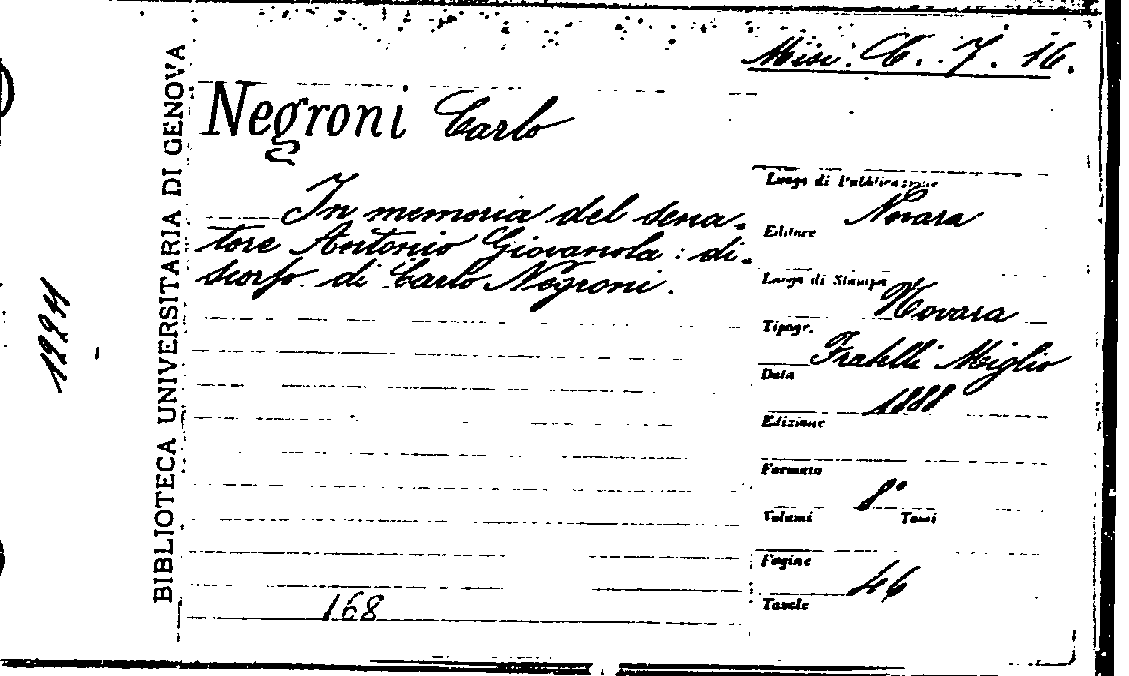 Misc. C. 7. 16.
BIBLIOTECA UNIVERSITARIA DI GENOVA
Negroni Carlo
In memoria del sena=
tore Antonio Giovanola: di=
scorso di Carlo Negroni.
Luogo di Pubblicazione
Novara
Editore
Luogo di Stampa
Novara
Tipogr.
Fratelli Miglio
Data
1888
Edizione
Formato
8°
Volumi Tomi
Pagine
46
Tavole
168